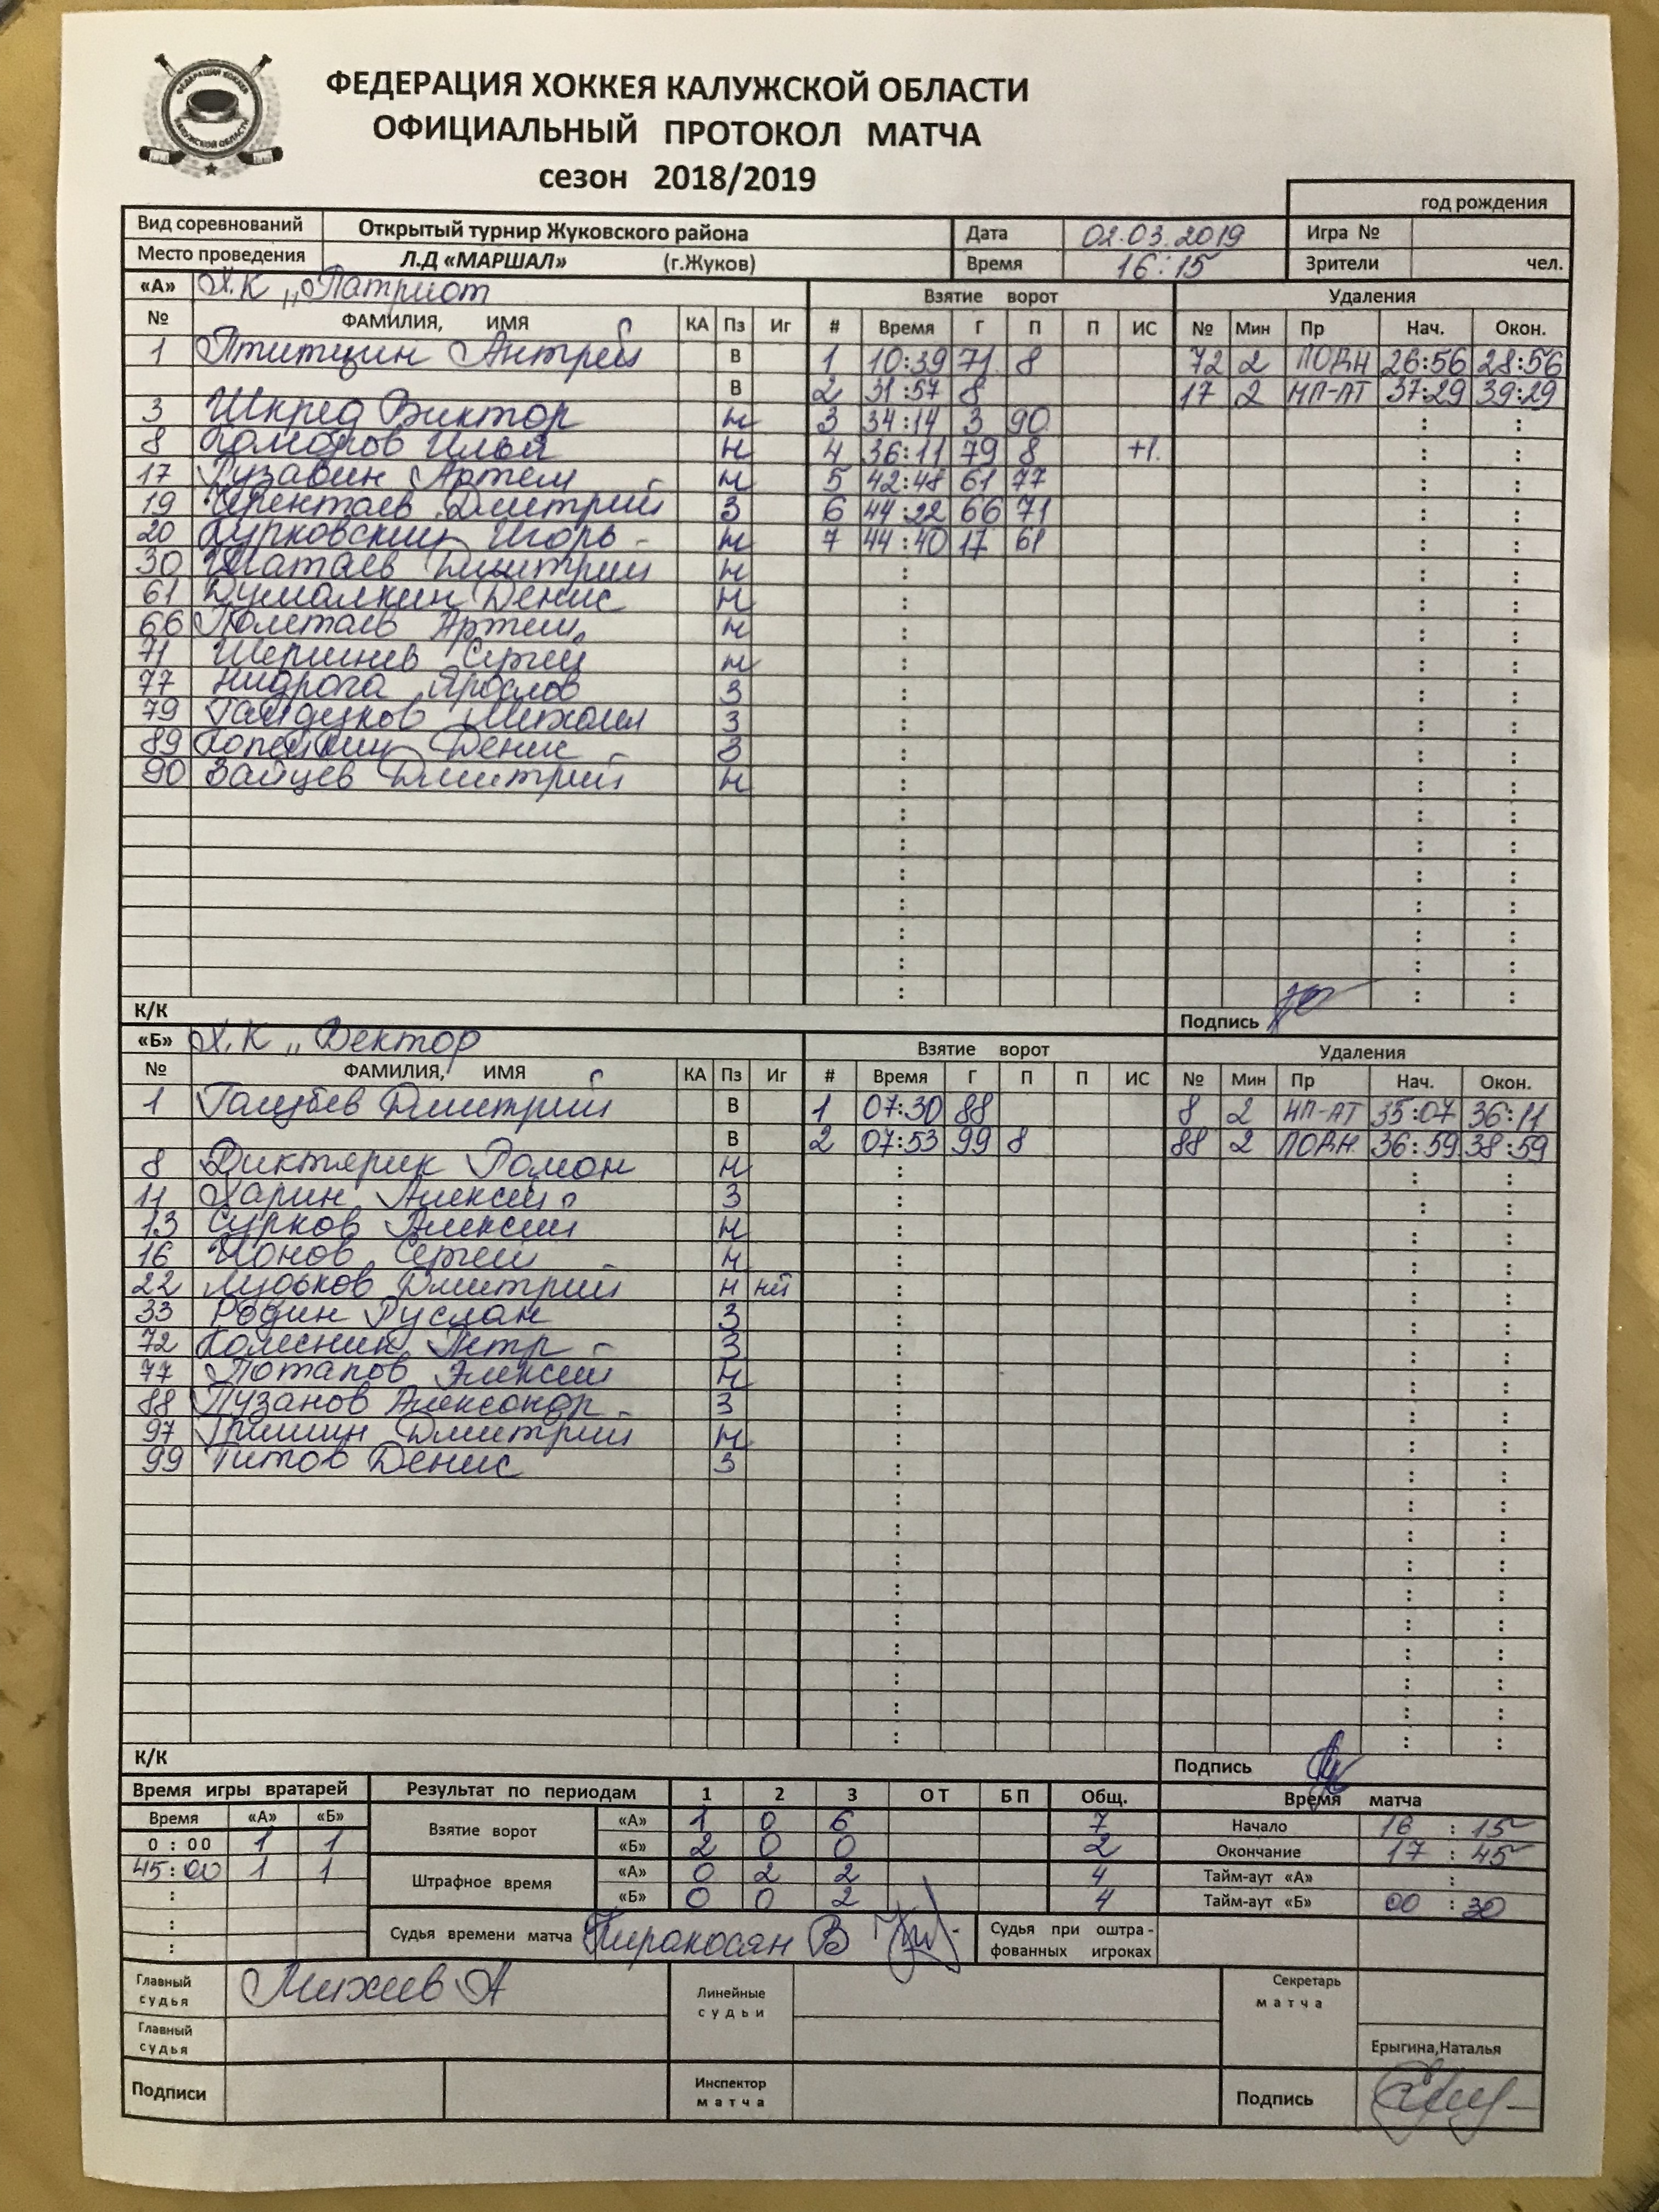 ФЕДЕРАЦИЯ ХОККЕЯ
КАЛУЖСКОЙ ОБЛАСТИ
ФЕДЕРАЦИЯ ХОККЕЯ КАЛУЖСКОЙ ОБЛАСТИ
ОФИЦИАЛЬНЫЙ ПРОТОКОЛ МАТЧА
сезон 2018/2019
год рождения
Вид соревнований Открытый турнир Жуковского района Дата 02.03.2019 Игра №
Место проведения Л.Д «МАРШАЛ» (г.Жуков) Время 16:15 Зрители чел.
«А» Х.К „Патриот Взятие ворот Удаления
№ ФАМИЛИЯ, ИМЯ КА Пз Иг # Время Г П П ИС № Мин Пр Нач. Окон.
1 Птитцин Антрей В 1 10:39 71 8 72 2 ПОДН 26:56 28:56
В 2 31:57 8 17 2 НП-АТ 37:29 39:29
3 Шкред Виктор Н 3 34:14 3 90 : :
8 Комаров Илья Н 4 36:11 79 8 +1. : :
17 Гузавин Артем Н 5 42:48 61 77 : :
19 Черентаев Дмитрий З 6 44:22 66 71 : :
20 Курковский Игорь Н 7 44:40 17 61 : :
30 Шатаев Дмитрий Н : : :
61 Думалкин Денис Н : : :
66 Полетаев Артем Н : : :
71 Шершнев Сергей Н : : :
77 Нидрога Ярослов З : : :
79 Михаил З : : :
89 Копейкин Денис З : : :
90 Зайцев Дмитрий Н : : :
К/К Подпись
«Б» Х.К „Вектор Взятие ворот Удаления
№ ФАМИЛИЯ, ИМЯ КА Пз Иг # Время Г П П ИС № Мин Пр Нач. Окон.
1 Голубев Дмитрий В 1 07:30 88 8 2 НП-АТ 35:07 36:11
В 2 07:53 99 8 88 2 ПОДН. 36:59 38:59
8 Диктярик Роман Н : : :
11 Харин Алексей З : : :
13 Сурков Алексей Н : : :
16 Ионов Сергей Н : : :
22 Лудьков Дмитрий Н НП : : :
33 Родин Руслан З : : :
72 Колесник Петр З : : :
77 Потапов Алексей Н : : :
88 Пузанов Александр З : : :
97 Гришин Дмитрий Н : : :
99 Титов Денис З : : :
К/К Подпись
Время игры вратарей Результат по периодам 1 2 3 ОТ БП Общ. Время матча
Время «А» «Б» Взятие ворот «А» 1 0 6 7 Начало 16 : 15
0 : 00 1 1 «Б» 2 0 0 2 Окончание 17 : 45
45:00 1 1 Штрафное время «А» 0 2 2 4 Тайм-аут «А» :
: «Б» 0 0 2 4 Тайм-аут «Б» 00 : 30
: Судья времени матча Киракосян В Судья при оштра-
: фованных игроках
Главный судья Михеев А Линейные судьи Секретарь матча
Главный судья Ерыгина,Наталья
Подписи Инспектор матча Подпись